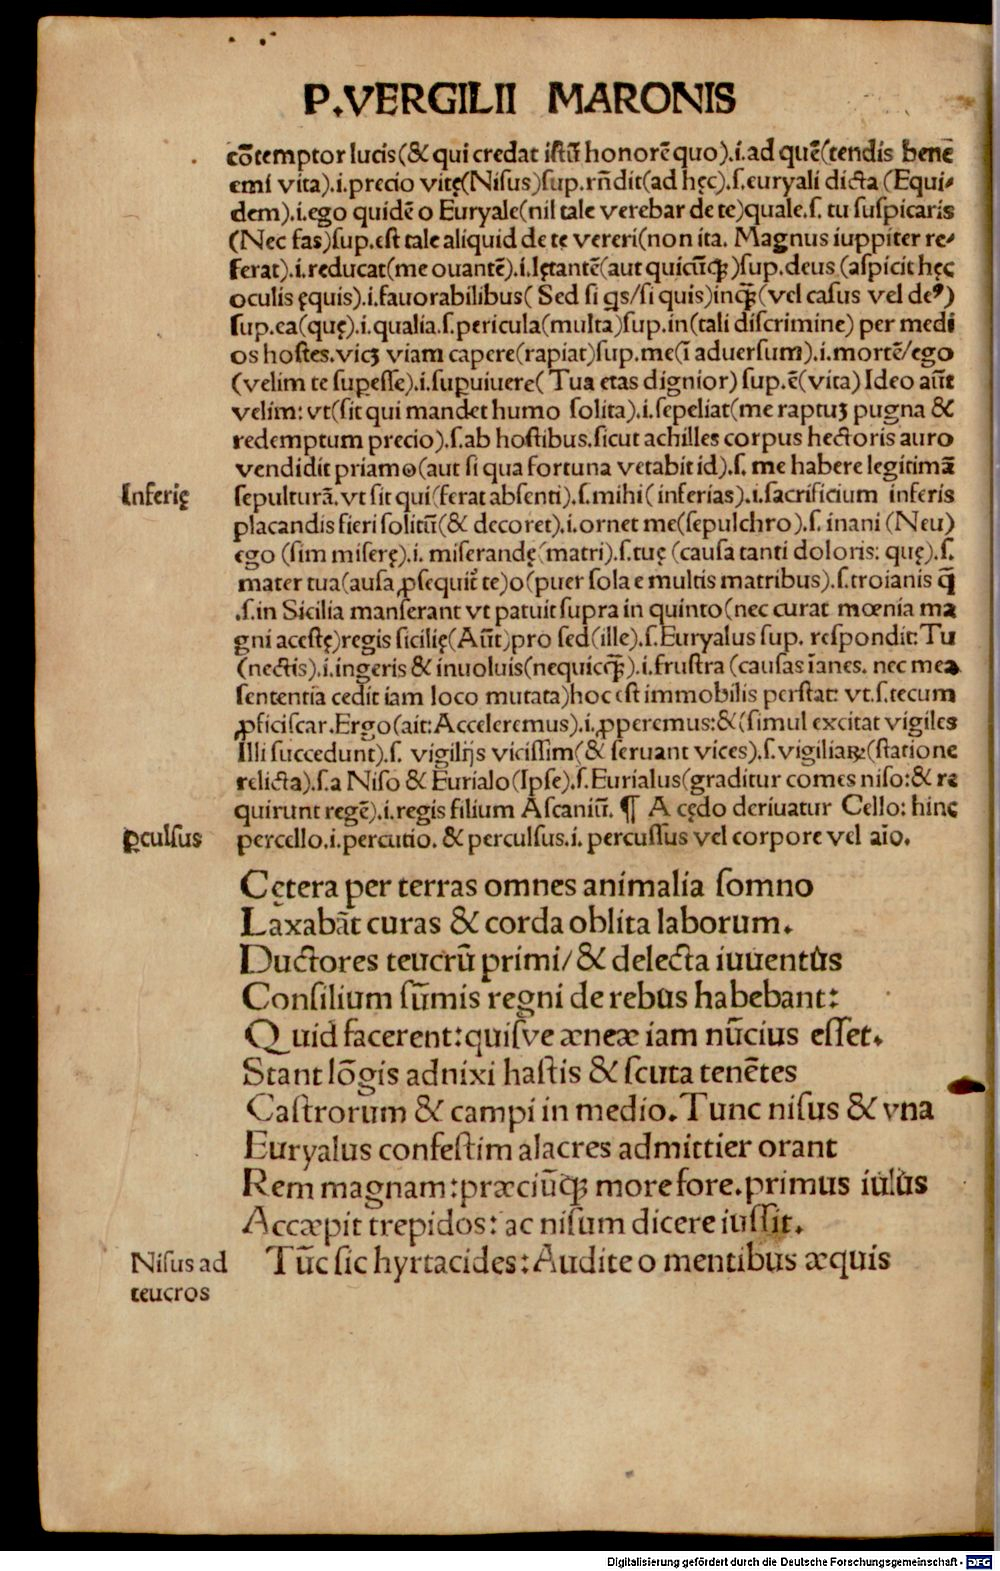 P.VERGILII MARONIS
cōtemptor lucis(& qui credat istū honorē quo).i.ad quē(tendis bene
emi vita).i.precio vitę(Nisus)sup.rn̄dit(ad hęc).s.euryali dicta (Equi-
dem).i.ego quidē o Euryale(nil tale verebar de te)quale.s. tu suspicaris
(Nec fas)sup.est tale aliquid de te vereri(non ita. Magnus iuppiter re-
ferat).i.reducat(me ouantē).i.lętantē(aut quicūqꝫ)sup.deus (aspicit hęc
oculis ęquis).i.fauorabilibus( Sed si qs/si quis)inqꝫ(vel casus vel deꝰ)
sup.ea(quę).i.qualia.s.pericula(multa)sup.in(tali discrimine) per medi
os hostes.vicꝫ viam capere(rapiat)sup.me(ī aduersum).i.mortē/ego
(velim te suꝑesse).i.suꝑuiuere( Tua etas dignior) sup.ē(vita) Ideo aūt
velim: vt(sit qui mandet humo solita).i.sepeliat(me raptuꝫ pugna &
redemptum precio).s.ab hostibus.sicut achilles corpus hectoris auro
vendidit priamo(aut si qua fortuna vetabit id).s. me habere legitimā
Inferię
sepulturā.vt sit qui(ferat absenti).s.mihi( inferias).i.sacrificium inferis
placandis fieri solitū(& decoret).i.ornet me(sepulchro).s. inani (Neu)
ego (sim miserę).i. miserandę(matri).s.tuę (causa tanti doloris: quę).s.
mater tua(ausa ꝓsequit̄ te)o(puer sola e multis matribus).s.troianis q̄
.s.in Sicilia manserant vt patuit supra in quinto(nec curat mœnia ma
gni acestę)regis sicilię(Aūt)pro sed(ille).s.Euryalus sup. respondit: Tu
(nectis).i.ingeris & inuoluis(nequicqꝫ).i.frustra (causas īanes. nec mea
sententia cedit iam loco mutata)hoc est immobilis perstat: vt.s.tecum
ꝓficiscar.Ergo(ait: Acceleremus).i.ꝓperemus:&(simul excitat vigiles
Illi succedunt).s. vigilijs vicissim(& seruant vices).s.vigiliaꝝ(statione
relicta).s.a Niso & Eurialo(Ipse).s.Eurialus(graditur comes niso:& re
quirunt regē).i.regis filium Ascaniū. ¶ A cędo deriuatur Cello: hinc
ꝑculsus
percello.i.percutio. & perculsus.i. percussus vel corpore vel aīo.
Cętera per terras omnes animalia somno
Laxabāt curas & corda oblita laborum.
Ductores teucrū primi/& delecta iuuentus
Consilium sūmis regni de rebus habebant:
Quid facerent:quisve æneæ iam nūcius esset.
Stant lōgis adnixi hastis & scuta tenētes
Castrorum & campi in medio.Tunc nisus & vna
Euryalus confestim alacres admittier orant
Rem magnam:præciūqꝫ more fore.primus iulus
Accæpit trepidos: ac nisum dicere iussit.
Nisus ad
teucros
Tūc sic hyrtacides:Audite o mentibus æquis
Digitalisierung gefördert durch die Deutsche Forschungsgemeinschaft - DFG